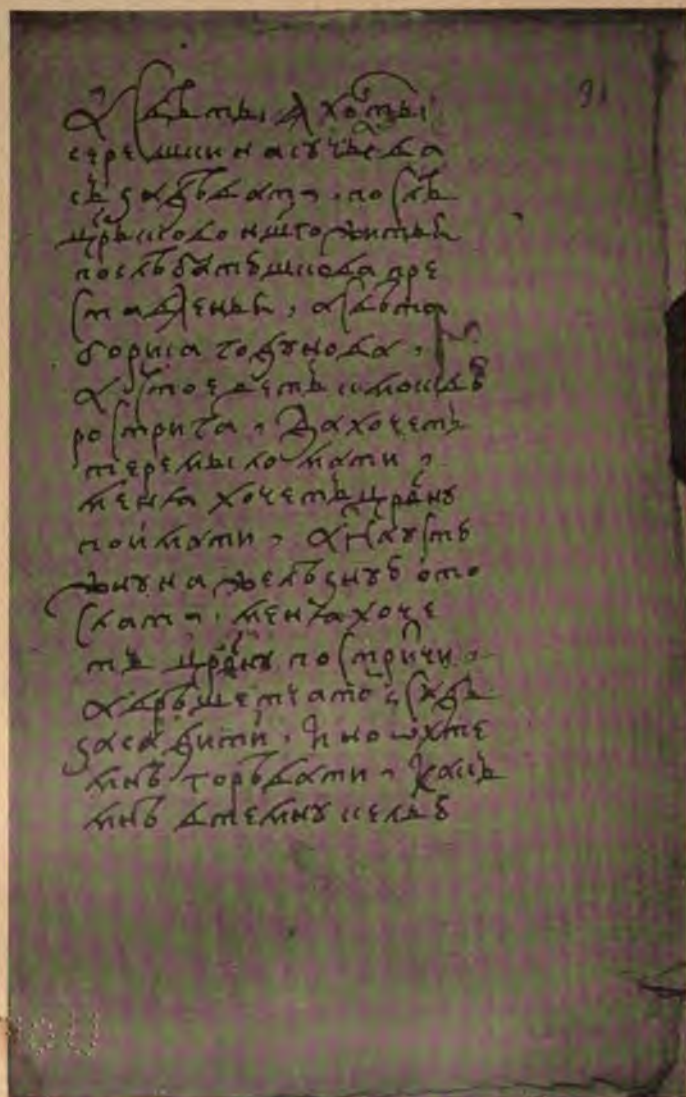 А свѣты яхонты
сережки насучьева
съ задѣвати, послѣ
црьсково ншго житья
послѣ батюшкова пре
ставленья, а свѣта
бориса годунова,
а што едетъ к москвѣ
рострига, да хочетъ
теремы ломати,
меня хочетъ црвну
поимати, а на устю
жну на желѣзную ото
слати, меня хоче
тъ црвну постричи,
а в рѣшетчатои садъ
засадити, Ино ѡхте
мнѣ горѣвати, какъ
мнѣ в темну келью
91